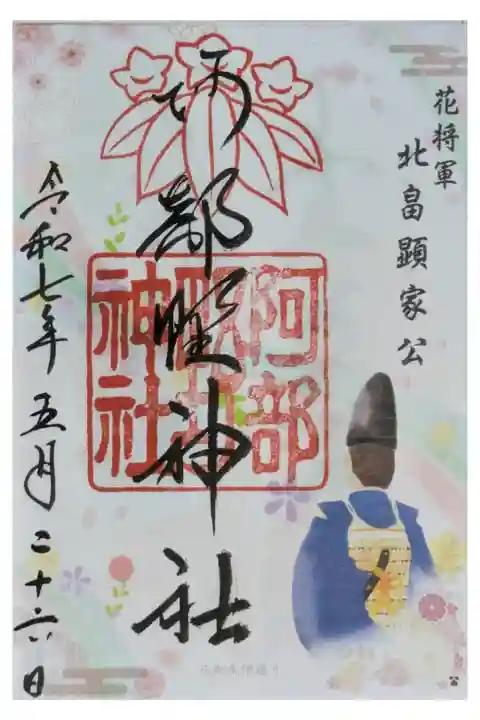 花将軍
北畠顕家公
阿部野神社
阿部野神社
令和七年五月二十六日